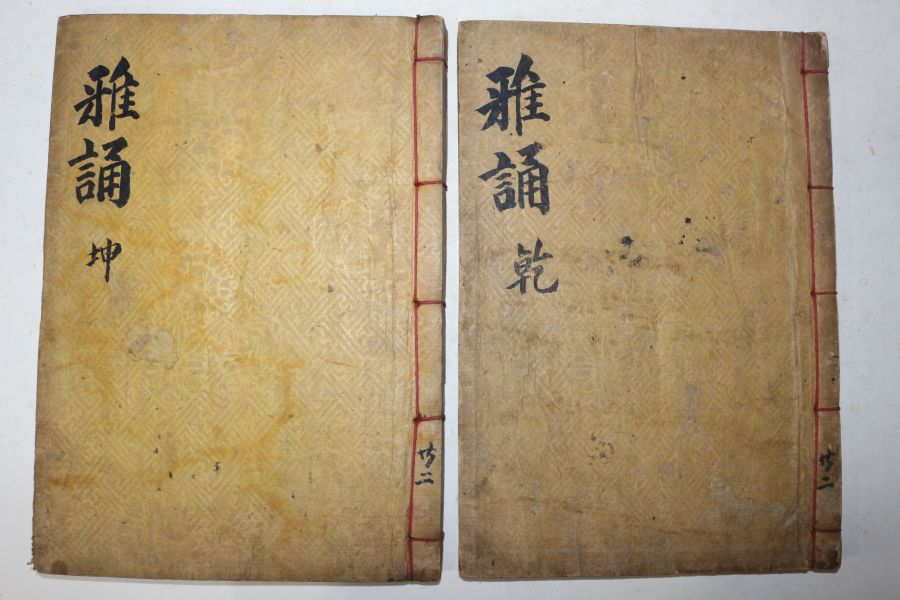 雅誦 乾
共二
雅誦 坤
共二